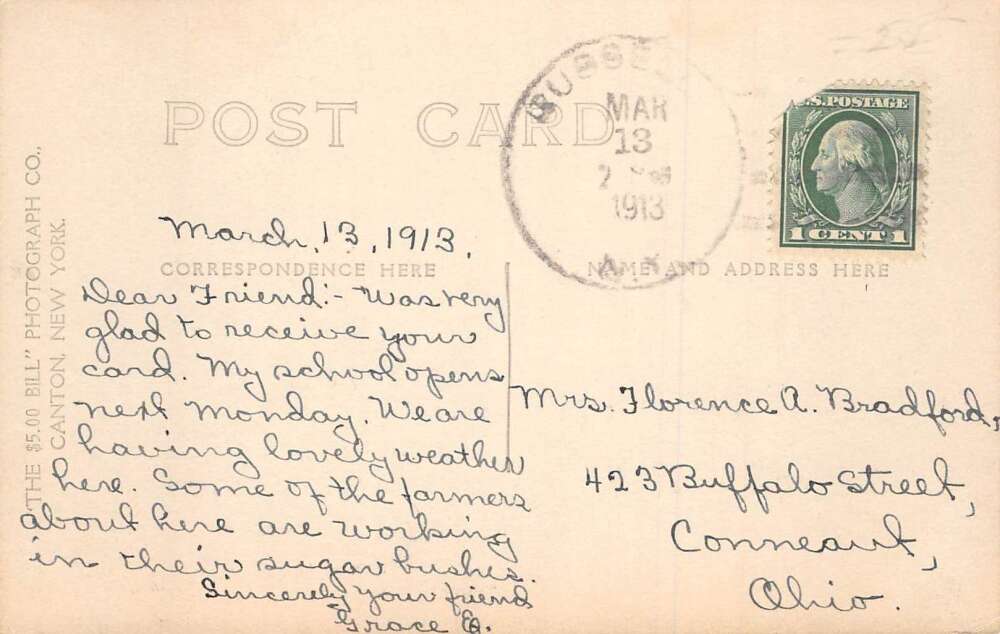 POST CARD
MAR
13
1913
U.S. POSTAGE
1 CENT 1
"THE $5.00 BILL" PHOTOGRAPH CO.,
CANTON, NEW YORK.
March, 13, 1913,
CORRESPONDENCE HERE
Dear Friend:- Was very
glad to receive your
card. My school opens
next Monday. We are
having lovely weather
here. Some of the farmers
about here are working
in their sugar bushes.
Sincerely your friend
Grace
NAME AND ADDRESS HERE
Mrs. Florence A. Bradford,
423 Buffalo Street,
Conneaut,
Ohio.